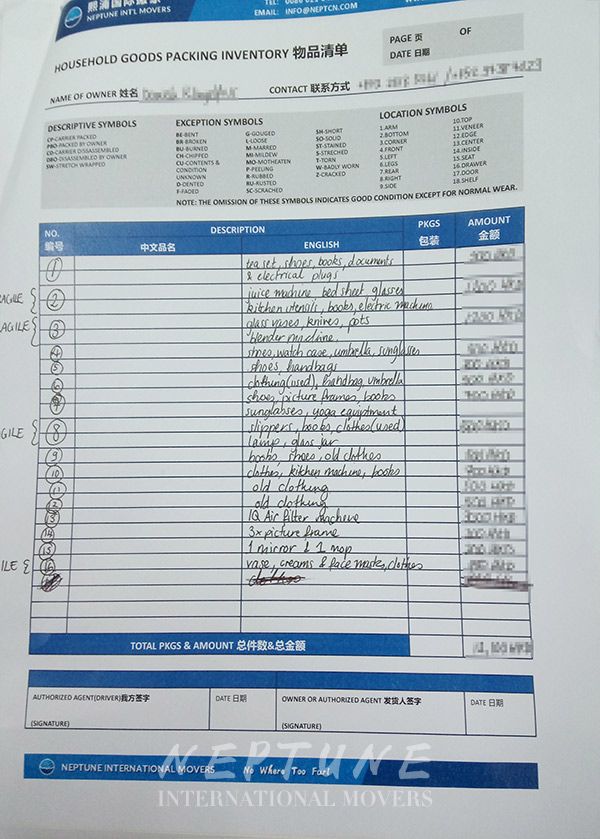 熙浦国际搬家
NEPTUNE INT'L MOVERS
EMAIL: INFO@NEPTCN.COM
HOUSEHOLD GOODS PACKING INVENTORY 物品清单
PAGE 页 OF
DATE 日期
NAME OF OWNER 姓名
CONTACT 联系方式
DESCRIPTIVE SYMBOLS
CP-CARRIER PACKED
PBO-PACKED BY OWNER
CD-CARRIER DISASSEMBLED
DBO-DISASSEMBLED BY OWNER
SW-STRETCH WRAPPED
EXCEPTION SYMBOLS
BE-BENT
BR-BROKEN
BU-BURNED
CH-CHIPPED
CU-CONTENTS &
CONDITION
UNKNOWN
D-DENTED
F-FADED
G-GOUGED
L-LOOSE
M-MARRED
MI-MILDEW
MO-MOTHEATEN
P-PEELING
R-RUBBED
RU-RUSTED
SC-SCRACHED
SH-SHORT
SO-SOLID
ST-STAINED
S-STRECHED
T-TORN
W-BADLY WORN
Z-CRACKED
LOCATION SYMBOLS
1.ARM
2.BOTTOM
3.CORNER
4.FRONT
5.LEFT
6.LEGS
7.REAR
8.RIGHT
9.SIDE
10.TOP
11.VENEER
12.EDGE
13.CENTER
14.INSIDE
15.SEAT
16.DRAWER
17.DOOR
18.SHELF
NOTE: THE OMISSION OF THESE SYMBOLS INDICATES GOOD CONDITION EXCEPT FOR NORMAL WEAR.
NO. 编号
DESCRIPTION
中文品名
ENGLISH
PKGS 包装
AMOUNT 金额
1 tea set, shoes, books, documents
& electrical plugs
AGILE 2 juice machine bed sheet, glasses
kitchen utensils, books, electric machine
AGILE 3 glass vases, knives, pots
blender machine.
4 shoes, watch case, umbrella, sunglasses
5 shoes, handbags
6 clothing (used), handbag, umbrella
7 shoes, picture frames, books
sunglasses, yoga equiptment
GILE 8 slippers, books, clothes (used)
lamp, glass jar
9 books, shoes, old clothes
10 clothes, kitchen machine, books
11 old clothing
12 old clothing
13 IQ Air filter machine
14 3x picture frame
15 1 mirror & 1 mop
ILE 16 vase, creams & face masks, clothes
TOTAL PKGS & AMOUNT 总件数&总金额
AUTHORIZED AGENT(DRIVER)我方签字
DATE 日期
OWNER OR AUTHORIZED AGENT 发货人签字
DATE 日期
(SIGNATURE)
(SIGNATURE)
NEPTUNE INTERNATIONAL MOVERS No Where Too Far!
NEPTUNE
INTERNATIONAL MOVERS